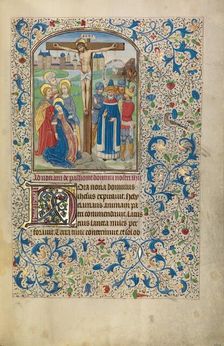 Ad nonam de passione domini nostri
ora nona dominus
ihesus expiravit. Hely
clamans animam
patri commendavit. Latus
eius lancea miles per
foravit. Terra tunc contremuit et sol ob